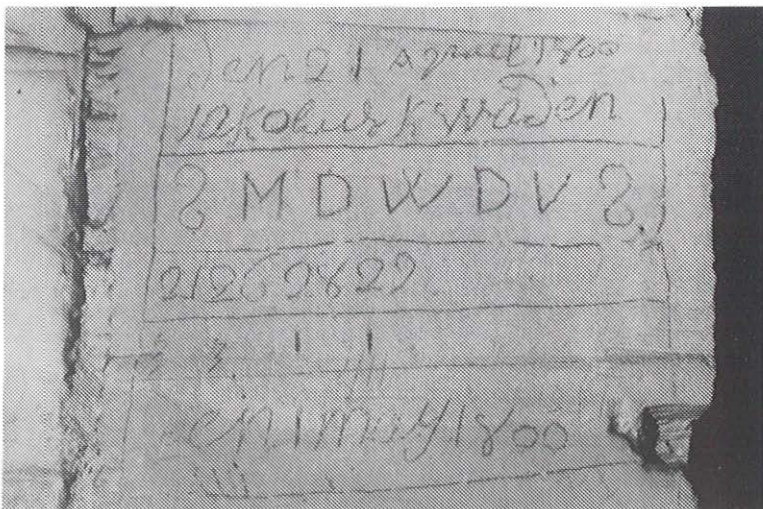 Den 21 Apriel 1800
Jakobus Kwaden
M D W D V
212629829
den 1 may 1800